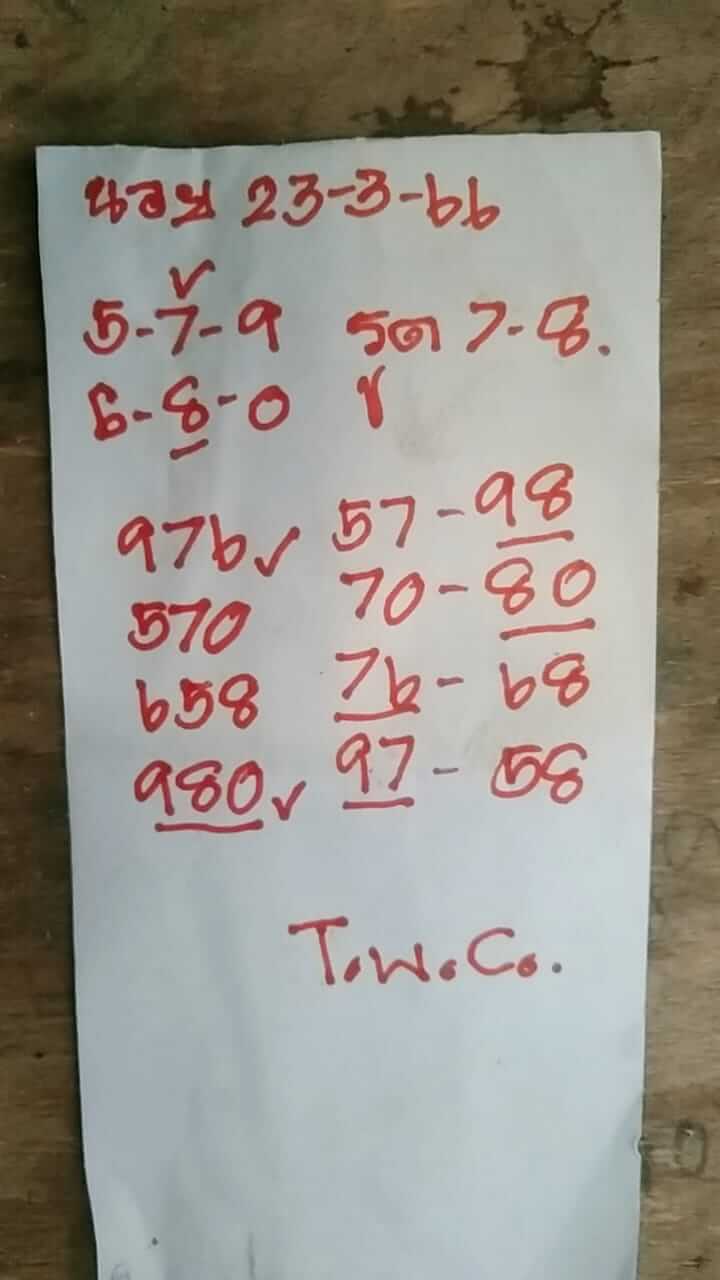 นอย 23-3-66
5-7-9 รูด 7-8.
6-8-0
976 57-98
570 70-80
658 76-68
980 97-58
T.W.C..